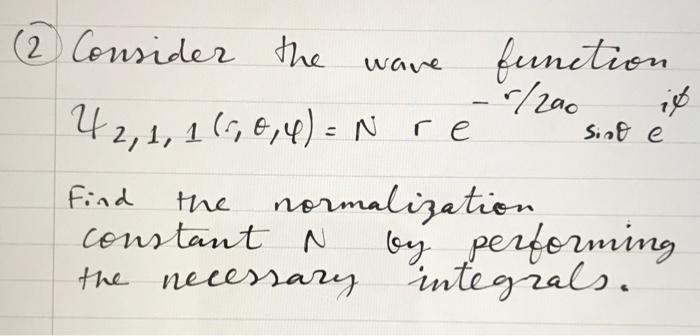 (2) Consider the wave function
Ψ2,1,1 (r, θ, φ) = N r e^-r/2a0 sinθ e^iφ
Find the normalization
constant N by performing
the necessary integrals.